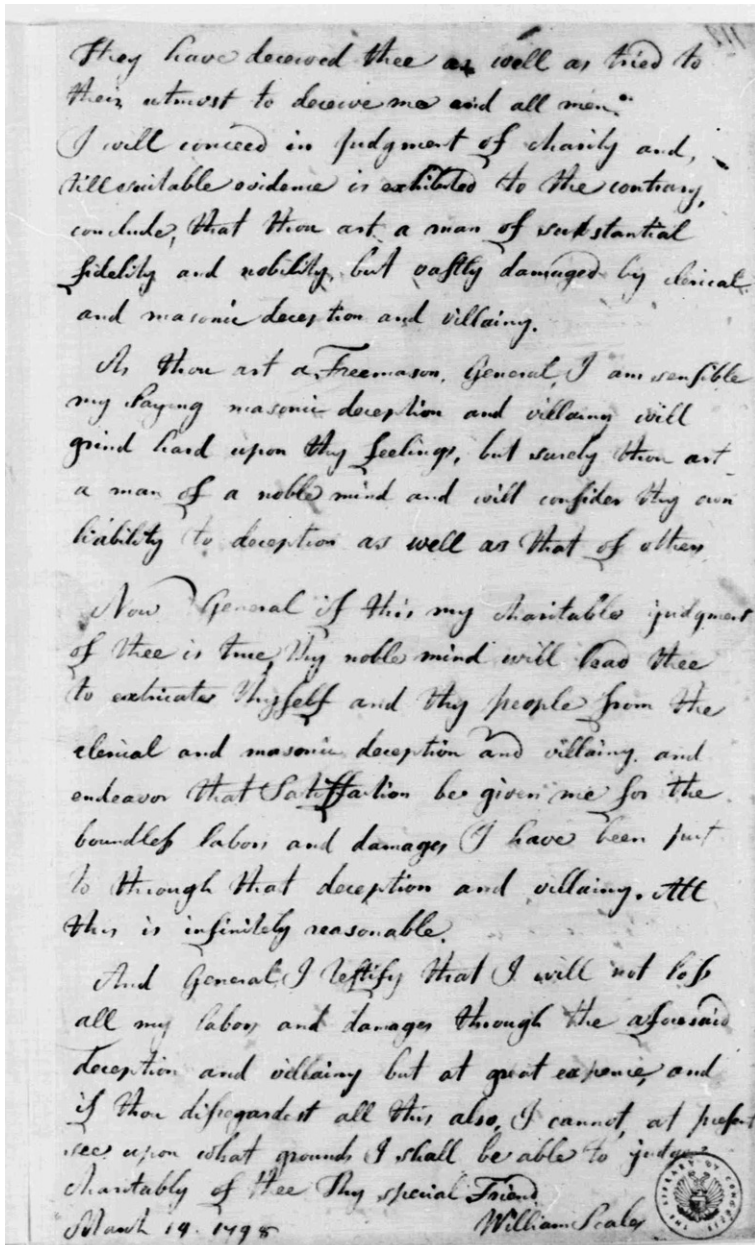 They have deceived thee as well as tried to
their utmost to deceive me and all men."
I will conceed in judgment of charity and,
till suitable evidence is exhibited to the contrary,
conclude, that thou art a man of substantial
fidelity and nobility, but vastly damaged by clerical
and masonic deception and villainy.
As thou art a Freemason, General, I am sensible
my saying masonic deception and villainy will
grind hard upon thy feelings, but surely thou art
a man of a noble mind and will consider thy own
liability to deception as well as that of others.
Now General if this my charitable judgment
of thee is true, thy noble mind will lead thee
to extricate thyself and thy people from the
clerical and masonic deception and villainy, and
endeavor that Satisfaction be given me for the
boundless labors and damages I have been put
to through that deception and villainy. All
this is infinitely reasonable.
And General, I testify that I will not loss
all my labors and damages through the aforesaid
deception and villainy but at great expence, and
if thou disregardest all this also, I cannot, at present
see upon what grounds I shall be able to judge
charitably of thee Thy special Friend
March 14. 1798 William Scales
THE LIBRARY OF CONGRESS